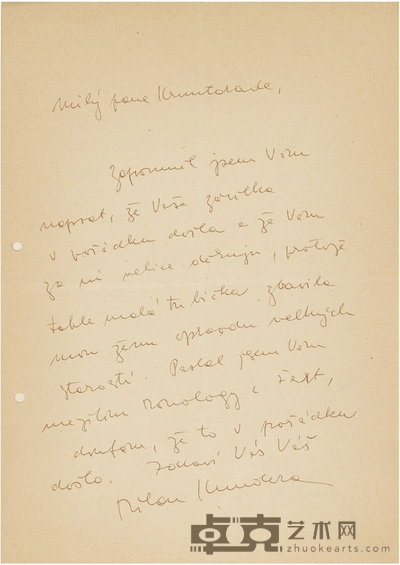 Milý pane
Zapomněl jsem Vám
napsat, že Vaše zásilka
v pořádku došla a že Vám
za ni velice děkuji, protože
tahle malá trubička zbavila
mou ženu opravdu velkých
starostí. Poslal jsem Vám
mezitím Monology a Žert,
doufám, že to v pořádku
došlo. Zdraví Vás Váš
Milan Kundera
卓克艺术网
zhuokearts.com